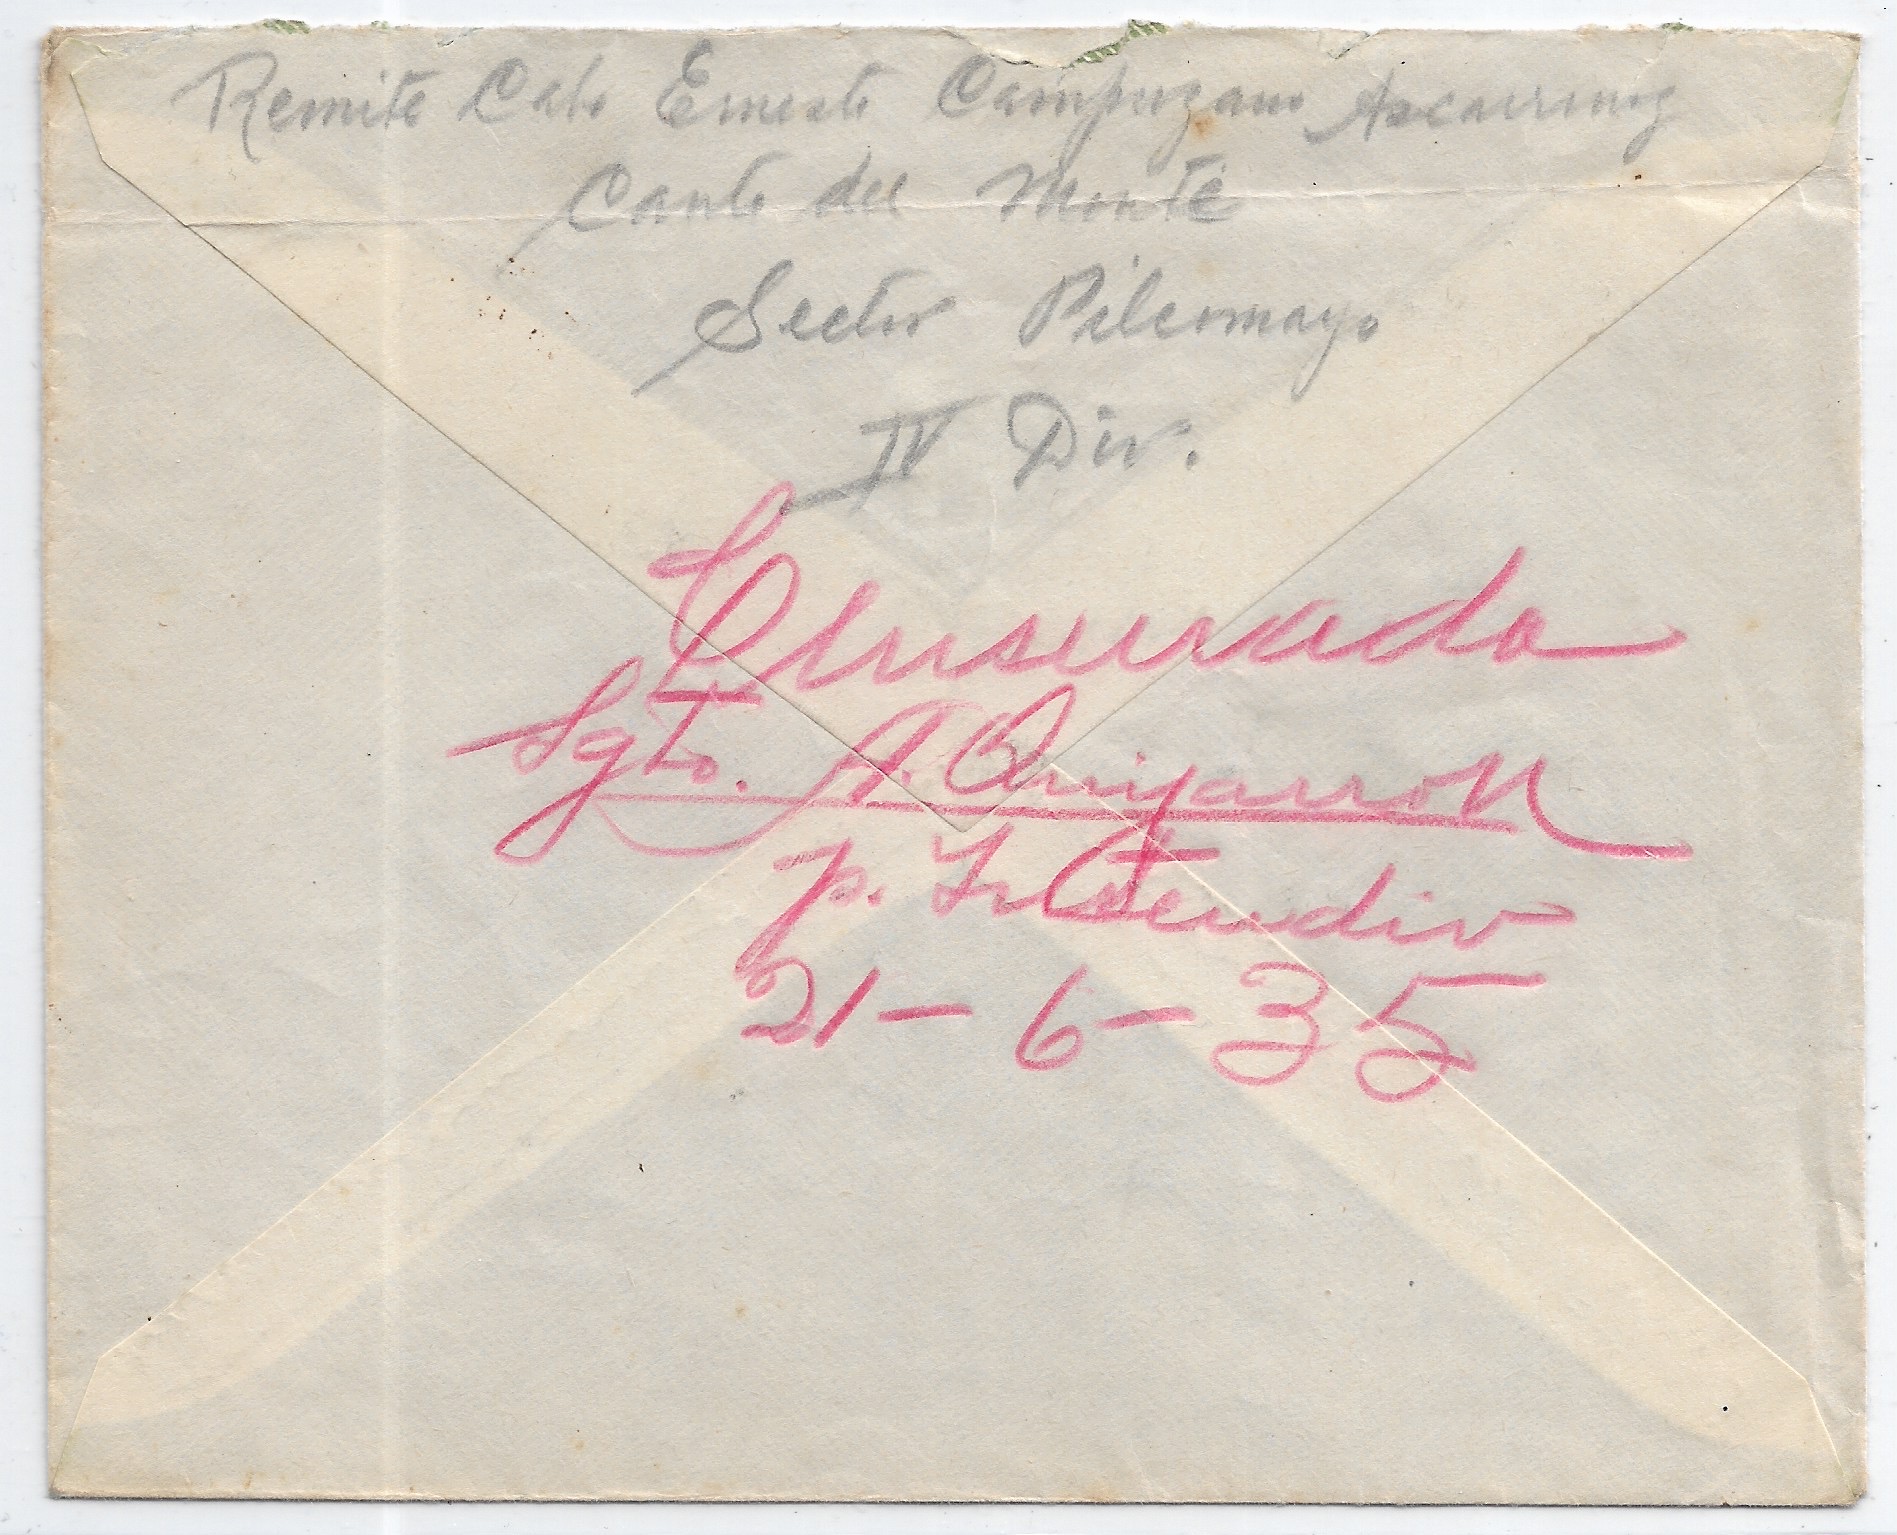 Remite Cabo Ernesto Campuzano Ascarrunz
Canto del Monte
Sector Pilcomayo
IV Div.
Censurado
Sgto. A. Quijarro M
p. Intendiv
21-6-35